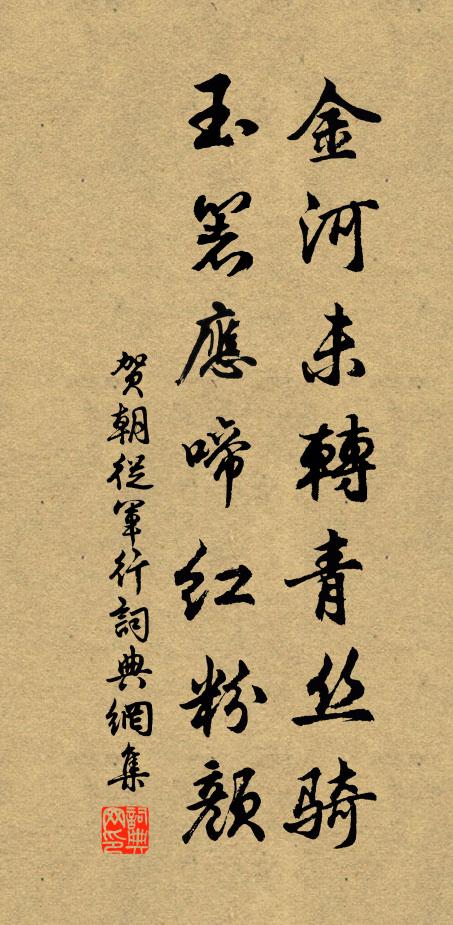 金河未轉青丝骑
玉箸應啼红粉顔
贺朝從軍行詞典網集
詞典网印